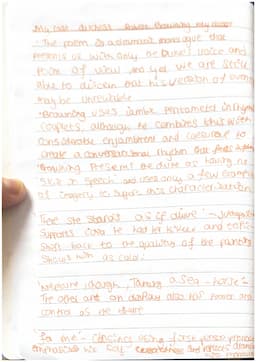 My last duchess Robert Browning
- The poem is a dramatic monologue that
presents us with only one Duke's voice and
Point of view and yet we are still
able to discern that his version of events
may be unreliable
• Browning uses iambic pentameter in rhyming
couplets, although he combines this with
considerable enjambment and caesurae to
create a conversational rhythm that feels
• Browning Presents the duke as having no
skill in speech and uses only a few examples
of imagery to support this characterisation
'There she stands as if alive' -
Supports idea he had her killed and
shift back to the quality of the painting
shows him as cold.
'Neptune though, Taming a sea-horse'-
The other art on display also has power and
control as the theme
for me' - Closing using first person pronoun
emphasises